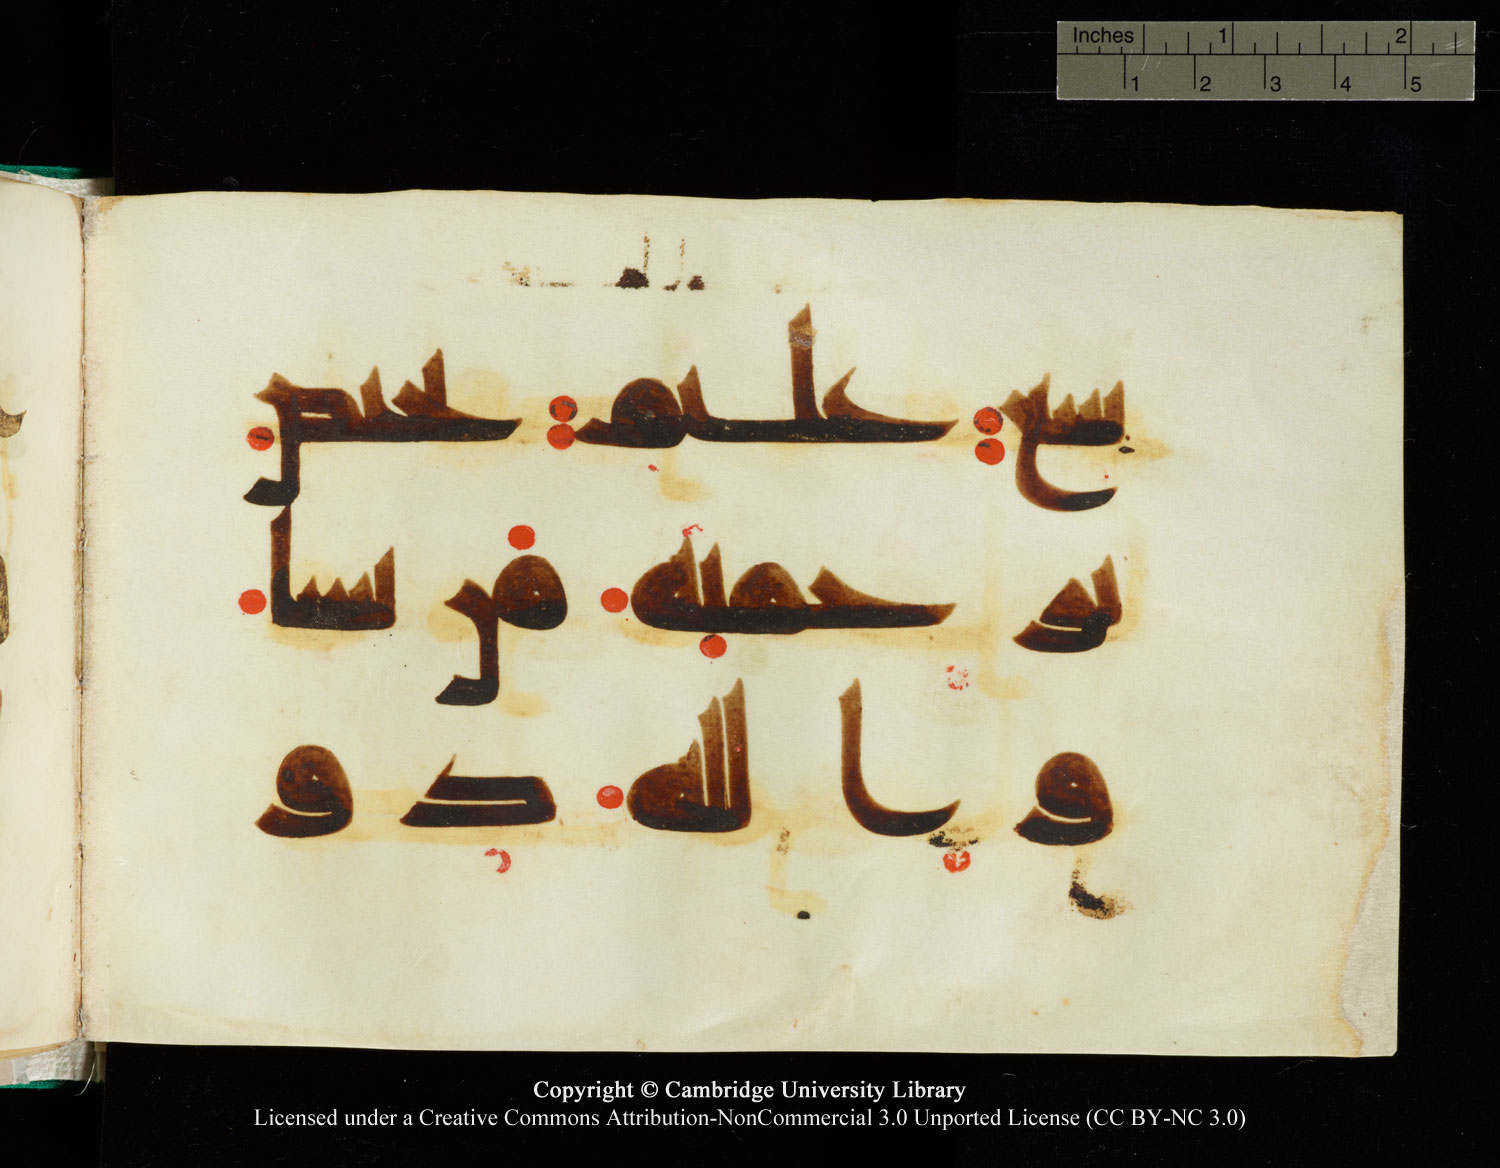 Inches 1 2
1 2 3 4 5
سع عليم يختص
بر حمته من يشا
و الله ذو
Copyright © Cambridge University Library
Licensed under a Creative Commons Attribution-NonCommercial 3.0 Unported License (CC BY-NC 3.0)